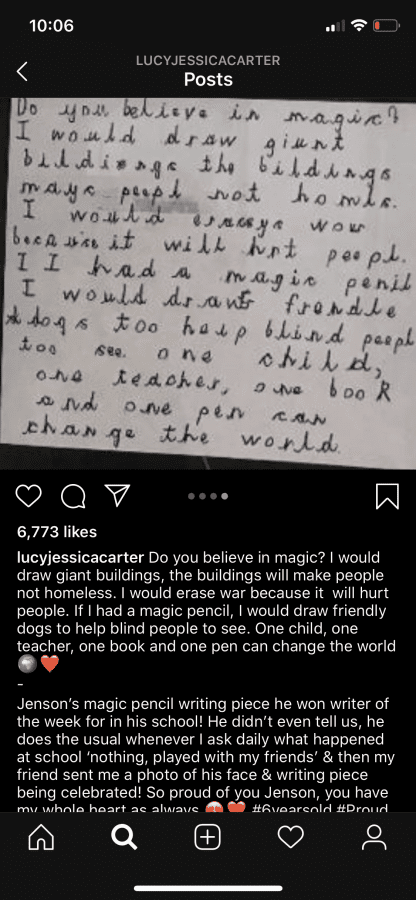 10:06
LUCYJESSICACARTER
Posts
Do you believe in magic?
I would draw giunt
bildisngs the bildings
mays peepl not homls.
I would erasye wour
because it will hrt peepl.
I I had a magic penil
I would draw frendle
dogs too help blind peepl
too see. one child,
one teacher, one booK
and one pen can
change the world.
6,773 likes
lucyjessicacarter Do you believe in magic? I would
draw giant buildings, the buildings will make people
not homeless. I would erase war because it will hurt
people. If I had a magic pencil, I would draw friendly
dogs to help blind people to see. One child, one
teacher, one book and one pen can change the world
-
Jenson's magic pencil writing piece he won writer of
the week for in his school! He didn't even tell us, he
does the usual whenever I ask daily what happened
at school 'nothing, played with my friends' & then my
friend sent me a photo of his face & writing piece
being celebrated! So proud of you Jenson, you have
my whole heart as always #6yearsold #Proud